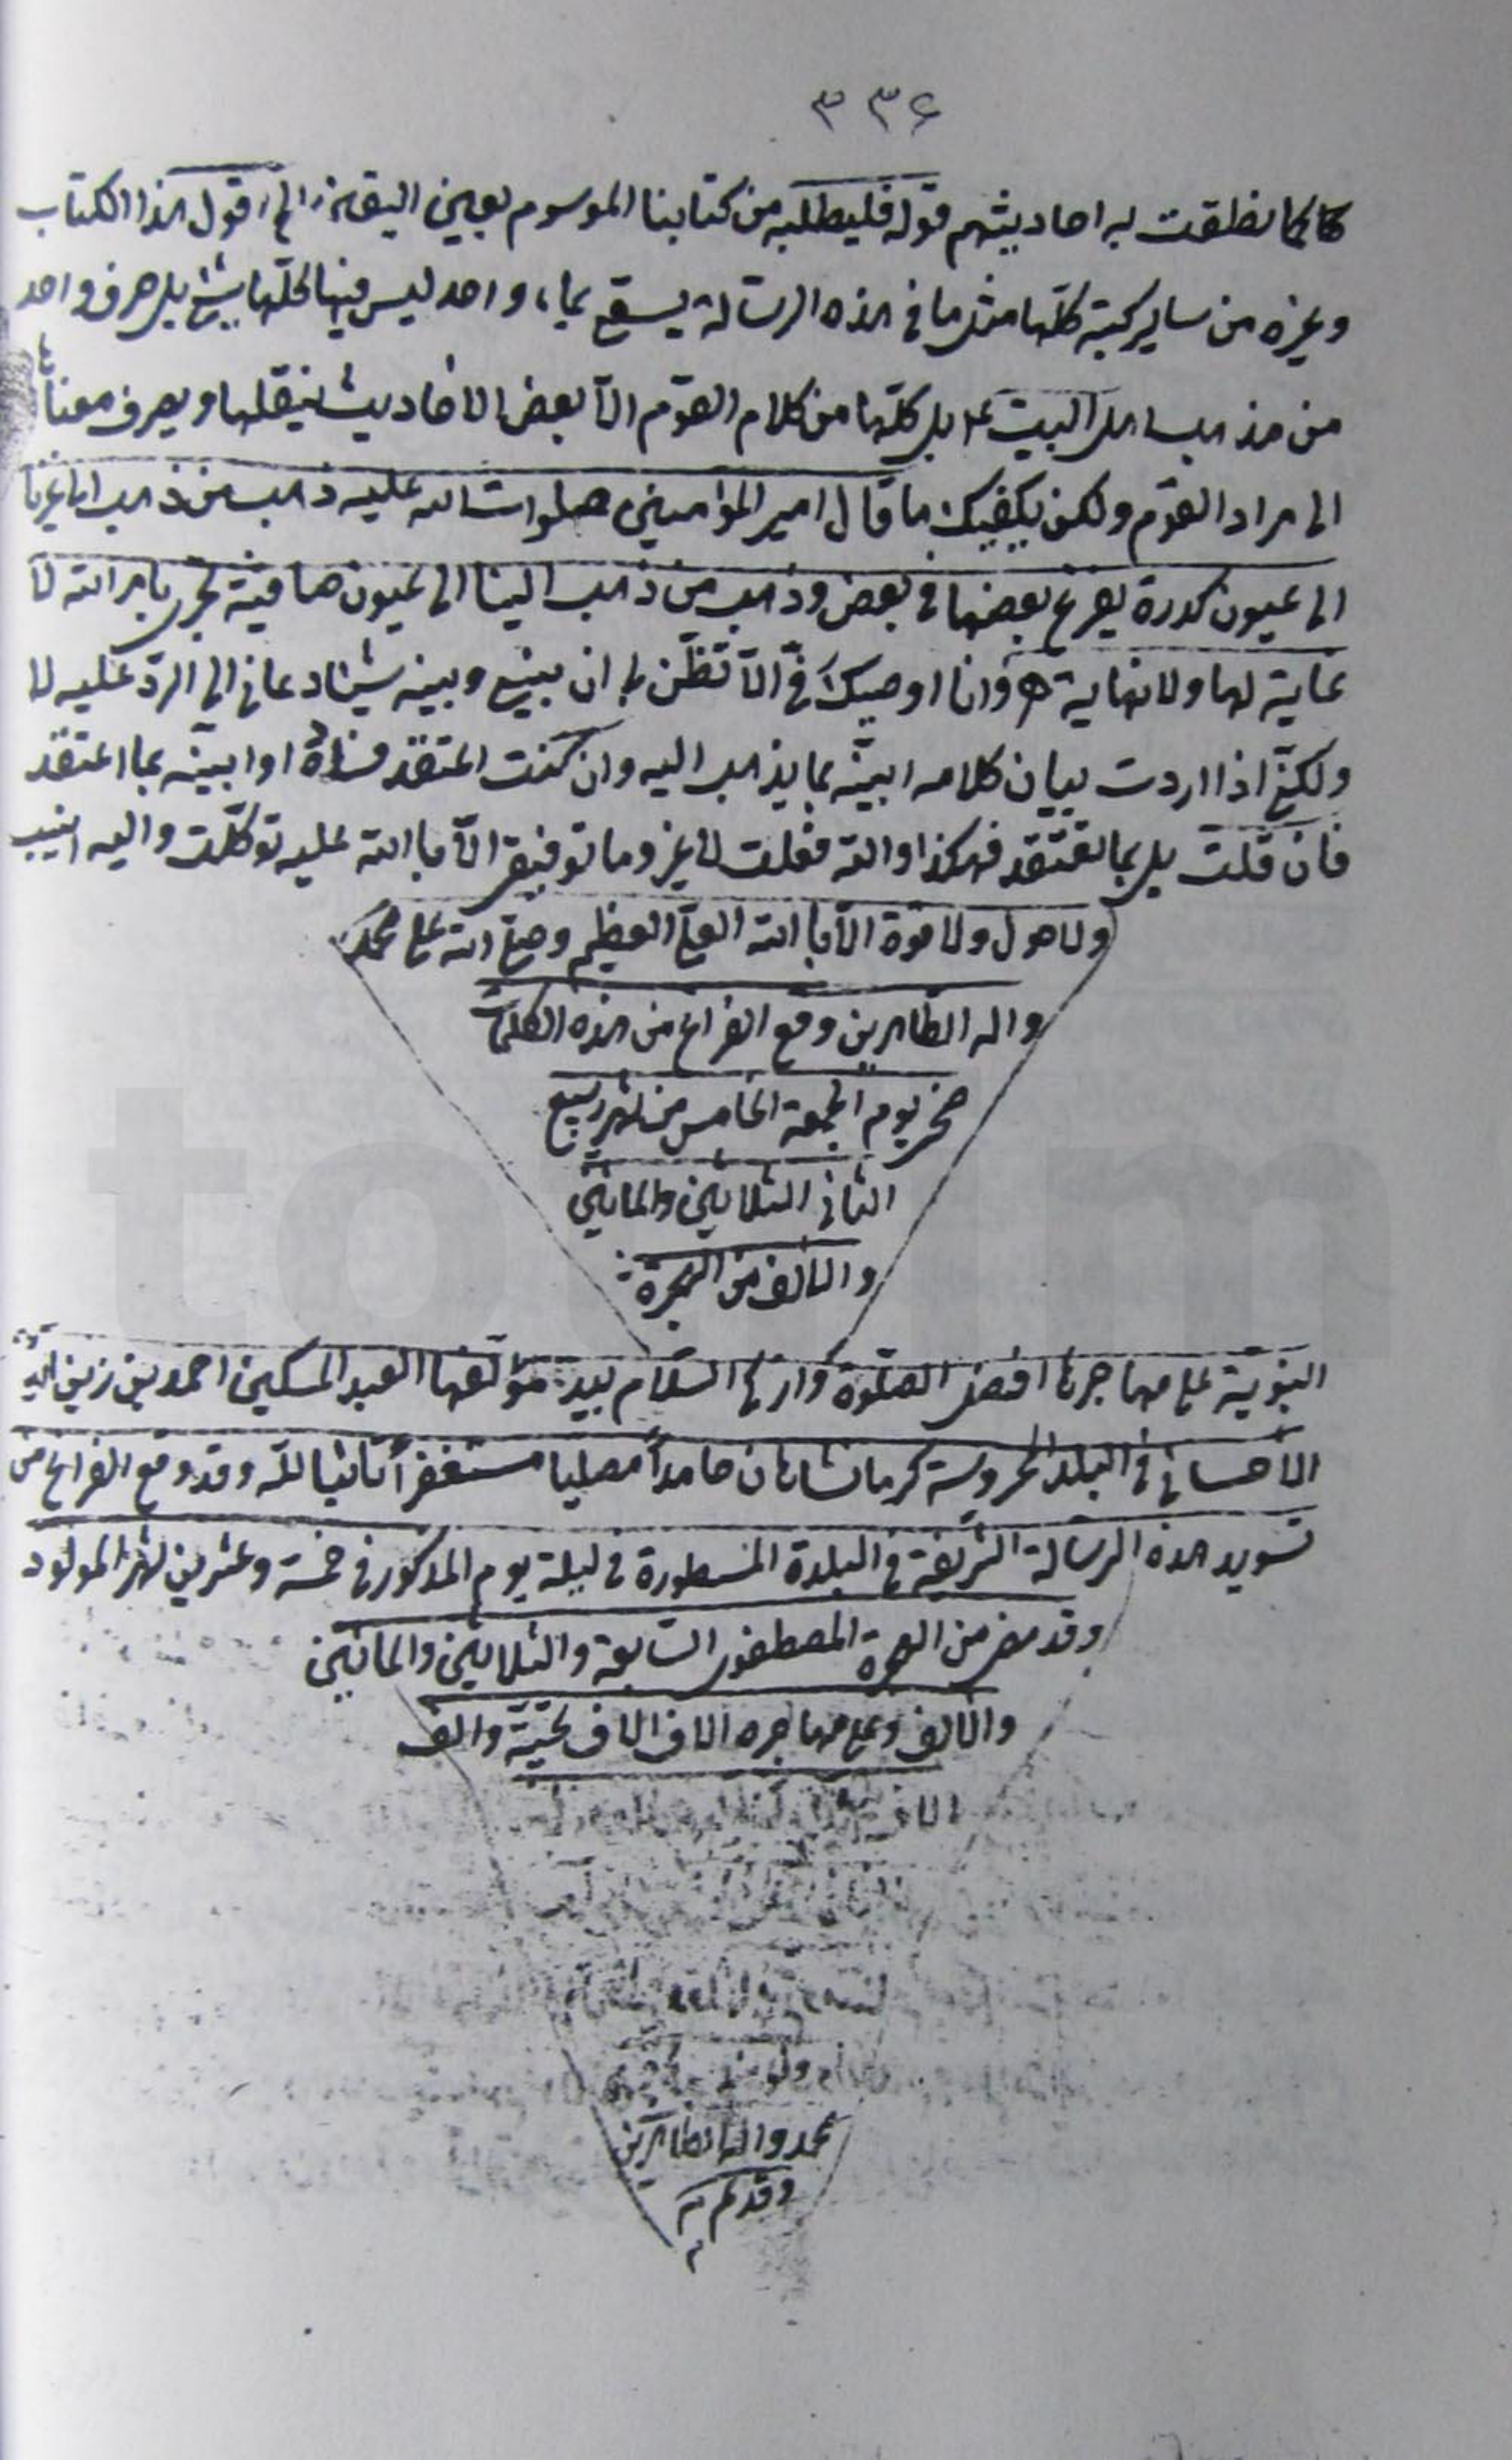 ۳۳۶
كما نطقت به احاديثهم قوله فليطلبه من كتابنا الموسوم بعين اليقين الخ اقول هذا الكتاب
وغيره من ساير كتبه كلها مثل ما في هذه الرسالة يسقى بماء واحد ليس فيها كلها شئ بل حرف واحد
من مذهب اهل البيت ع بل كلها من كلام القوم الا بعض الاحاديث ينقلها ويصرف معناها
الى مراد القوم ولكن يكفيك ما قال امير المؤمنين صلوات الله عليه ذهب من ذهب الى غيرنا
الى عيون كدرة يفرغ بعضها في بعض وذهب من ذهب الينا الى عيون صافية تجري بامر الله لا
غاية لها ولا نهاية وانا اوصيك في الا تظن بي ان بيني وبينه شيئا دعاني الى الرد عليه لا
ولكني اذا اردت بيان كلامه ابينه بما يذهب اليه وان كنت اعتقد فساده او ابينه بما اعتقد
فان قلت بل بما تعتقد فهكذا والله فعلت لا غير وما توفيقي الا بالله عليه توكلت واليه انيب
ولا حول ولا قوة الا بالله العلي العظيم وصلى الله على محمد
واله الطاهرين وقع الفراغ من هذه الكلمات
ضحى يوم الجمعة الخامس من شهر ربيع
الثاني الثلاثين والمائتين
والالف من الهجرة
النبوية على مهاجرها افضل الصلوة وازكى السلام بيد مؤلفها العبد المسكين احمد بن زين الدين
الأحسائي في البلد المحروسة كرمانشاهان حامداً مصليا مستغفراً تائبا لله وقد وقع الفراغ من
تسويد هذه الرسالة الشريفة في البلدة المسطورة في ليلة يوم المذكور في خمسة وعشرين شهر المولود
وقد مضى من الهجرة المصطفوي السابعة والثلاثين والمائتين
والالف وعلى مهاجره الاف الاف تحية والف
محمد واله الطاهرين
وقد تم